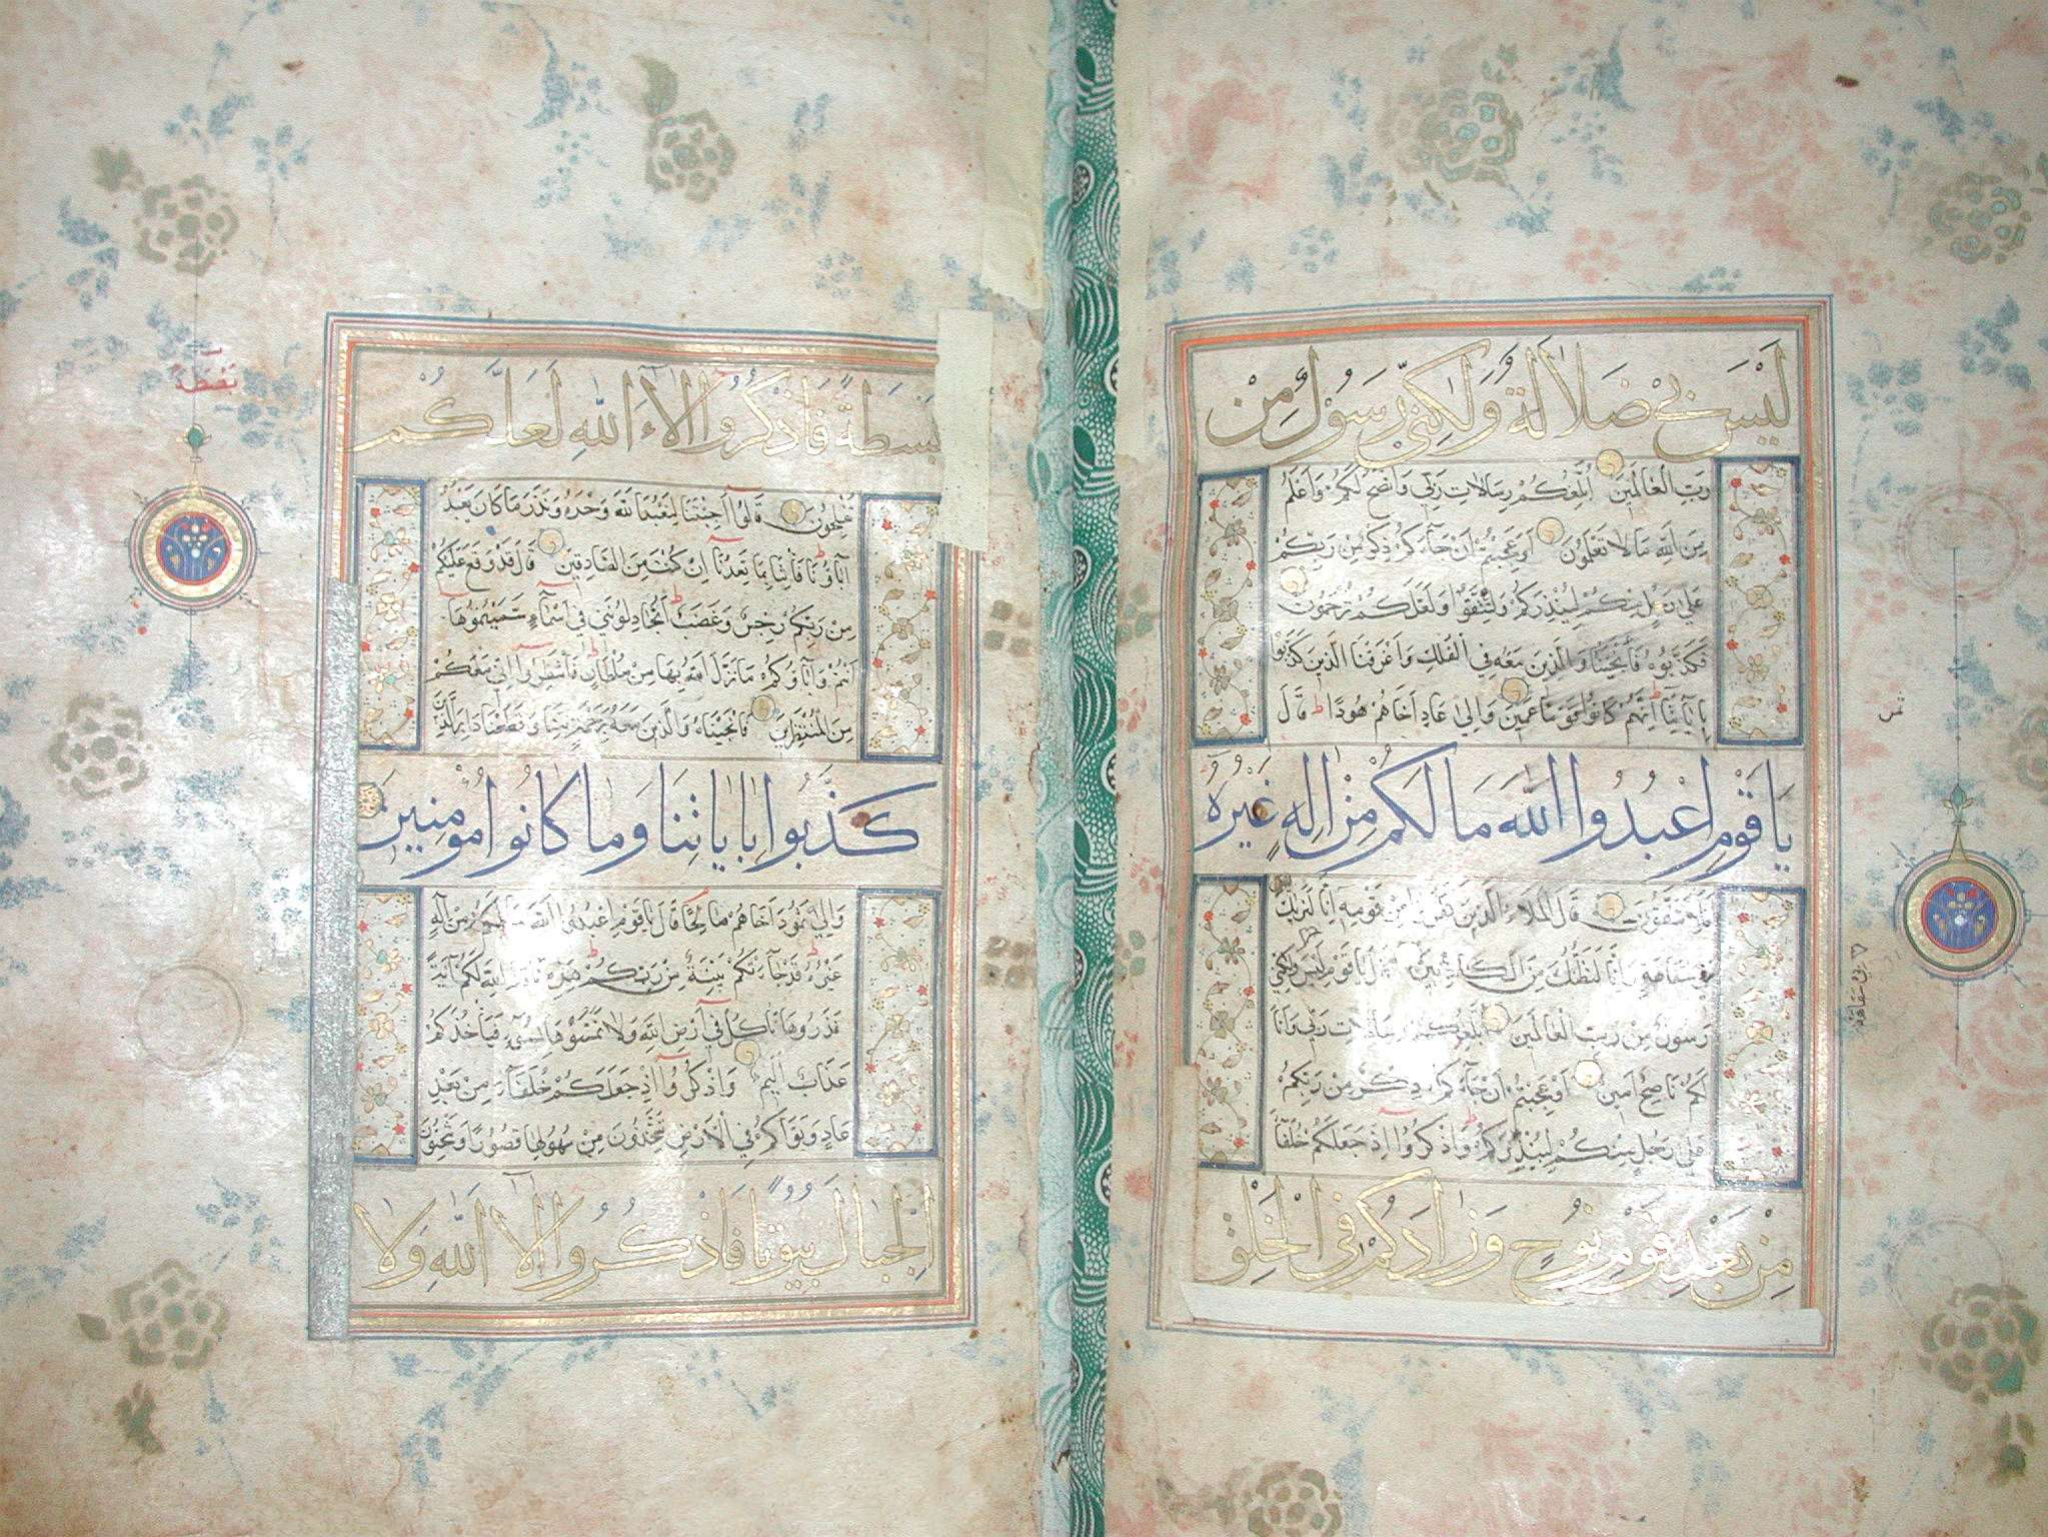 لَيْسَ بِي ضَلَالَةٌ وَلَكِنِّي رَسُولٌ مِنْ
رَبِّ الْعَالَمِينَ أُبَلِّغُكُمْ رِسَالَاتِ رَبِّي وَأَنْصَحُ لَكُمْ وَأَعْلَمُ
مِنَ اللَّهِ مَا لَا تَعْلَمُونَ أَوَعَجِبْتُمْ أَنْ جَاءَكُمْ ذِكْرٌ مِنْ رَبِّكُمْ
عَلَى رَجُلٍ مِنْكُمْ لِيُنْذِرَكُمْ وَلِتَتَّقُوا وَلَعَلَّكُمْ تُرْحَمُونَ
فَكَذَّبُوهُ فَأَنْجَيْنَاهُ وَالَّذِينَ مَعَهُ فِي الْفُلْكِ وَأَغْرَقْنَا الَّذِينَ كَذَّبُوا
بِآيَاتِنَا إِنَّهُمْ كَانُوا قَوْمًا عَمِينَ وَإِلَى عَادٍ أَخَاهُمْ هُودًا قَالَ
يَا قَوْمِ اعْبُدُوا اللَّهَ مَا لَكُمْ مِنْ إِلَهٍ غَيْرُهُ
أَفَلَا تَتَّقُونَ قَالَ الْمَلَأُ الَّذِينَ كَفَرُوا مِنْ قَوْمِهِ إِنَّا لَنَرَاكَ
فِي سَفَاهَةٍ وَإِنَّا لَنَظُنُّكَ مِنَ الْكَاذِبِينَ قَالَ يَا قَوْمِ لَيْسَ وَلَكِنِّي
رَسُولٌ مِنْ رَبِّ الْعَالَمِينَ أُبَلِّغُكُمْ رِسَالَاتِ رَبِّي وَأَنَا
لَكُمْ نَاصِحٌ أَمِينٌ أَوَعَجِبْتُمْ أَنْ جَاءَكُمْ ذِكْرٌ مِنْ رَبِّكُمْ
عَلَى رَجُلٍ مِنْكُمْ لِيُنْذِرَكُمْ وَاذْكُرُوا إِذْ جَعَلَكُمْ خُلَفَاءَ
مِنْ بَعْدِ قَوْمِ نُوحٍ وَزَادَكُمْ فِي الْخَلْقِ
ثمن
بي سَفَاهَةٌ
بَصْطَةً
بَسْطَةً فَاذْكُرُوا آلَاءَ اللَّهِ لَعَلَّكُمْ
تُفْلِحُونَ قَالُوا أَجِئْتَنَا لِنَعْبُدَ اللَّهَ وَحْدَهُ وَنَذَرَ مَا كَانَ يَعْبُدُ
آبَاؤُنَا فَأْتِنَا بِمَا تَعِدُنَا إِنْ كُنْتَ مِنَ الصَّادِقِينَ قَالَ قَدْ وَقَعَ عَلَيْكُمْ
مِنْ رَبِّكُمْ رِجْسٌ وَغَضَبٌ أَتُجَادِلُونَنِي فِي أَسْمَاءٍ سَمَّيْتُمُوهَا
أَنْتُمْ وَآبَاؤُكُمْ مَا نَزَّلَ اللَّهُ بِهَا مِنْ سُلْطَانٍ فَانْتَظِرُوا إِنِّي مَعَكُمْ
مِنَ الْمُنْتَظِرِينَ فَأَنْجَيْنَاهُ وَالَّذِينَ مَعَهُ بِرَحْمَةٍ مِنَّا وَقَطَعْنَا دَابِرَ الَّذِينَ
كَذَّبُوا بِآيَاتِنَا وَمَا كَانُوا مُؤْمِنِينَ
وَإِلَى ثَمُودَ أَخَاهُمْ صَالِحًا قَالَ يَا قَوْمِ اعْبُدُوا اللَّهَ مَا لَكُمْ مِنْ إِلَهٍ
غَيْرُهُ قَدْ جَاءَتْكُمْ بَيِّنَةٌ مِنْ رَبِّكُمْ هَذِهِ نَاقَةُ اللَّهِ لَكُمْ آيَةً
فَذَرُوهَا تَأْكُلْ فِي أَرْضِ اللَّهِ وَلَا تَمَسُّوهَا بِسُوءٍ فَيَأْخُذَكُمْ
عَذَابٌ أَلِيمٌ وَاذْكُرُوا إِذْ جَعَلَكُمْ خُلَفَاءَ مِنْ بَعْدِ
عَادٍ وَبَوَّأَكُمْ فِي الْأَرْضِ تَتَّخِذُونَ مِنْ سُهُولِهَا قُصُورًا وَتَنْحِتُونَ
الْجِبَالَ بُيُوتًا فَاذْكُرُوا آلَاءَ اللَّهِ وَلَا